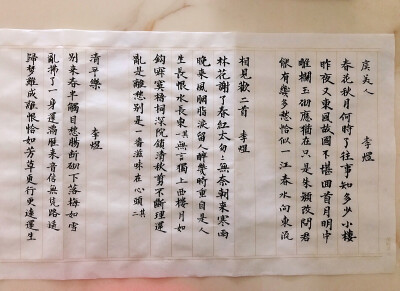 虞美人 李煜
春花秋月何時了往事知多少小樓
昨夜又東風故國不堪回首月明中
雕欄玉砌應猶在只是朱顔改問君
能有幾多愁恰似一江春水向東流
相見歡二首 李煜
林花謝了春紅太匆〻無奈朝來寒雨
晚來風胭脂淚留人醉幾時重自是人
生長恨水長東其一無言獨上西樓月如
鈎寂寞梧桐深院鎖清秋剪不斷理還
亂是離愁別是一番滋味在心頭其二
清平樂 李煜
別來春半觸目愁腸斷砌下落梅如雪
亂拂了一身還滿雁來音信無憑路遥
歸夢難成離恨恰如芳草更行更遠還生